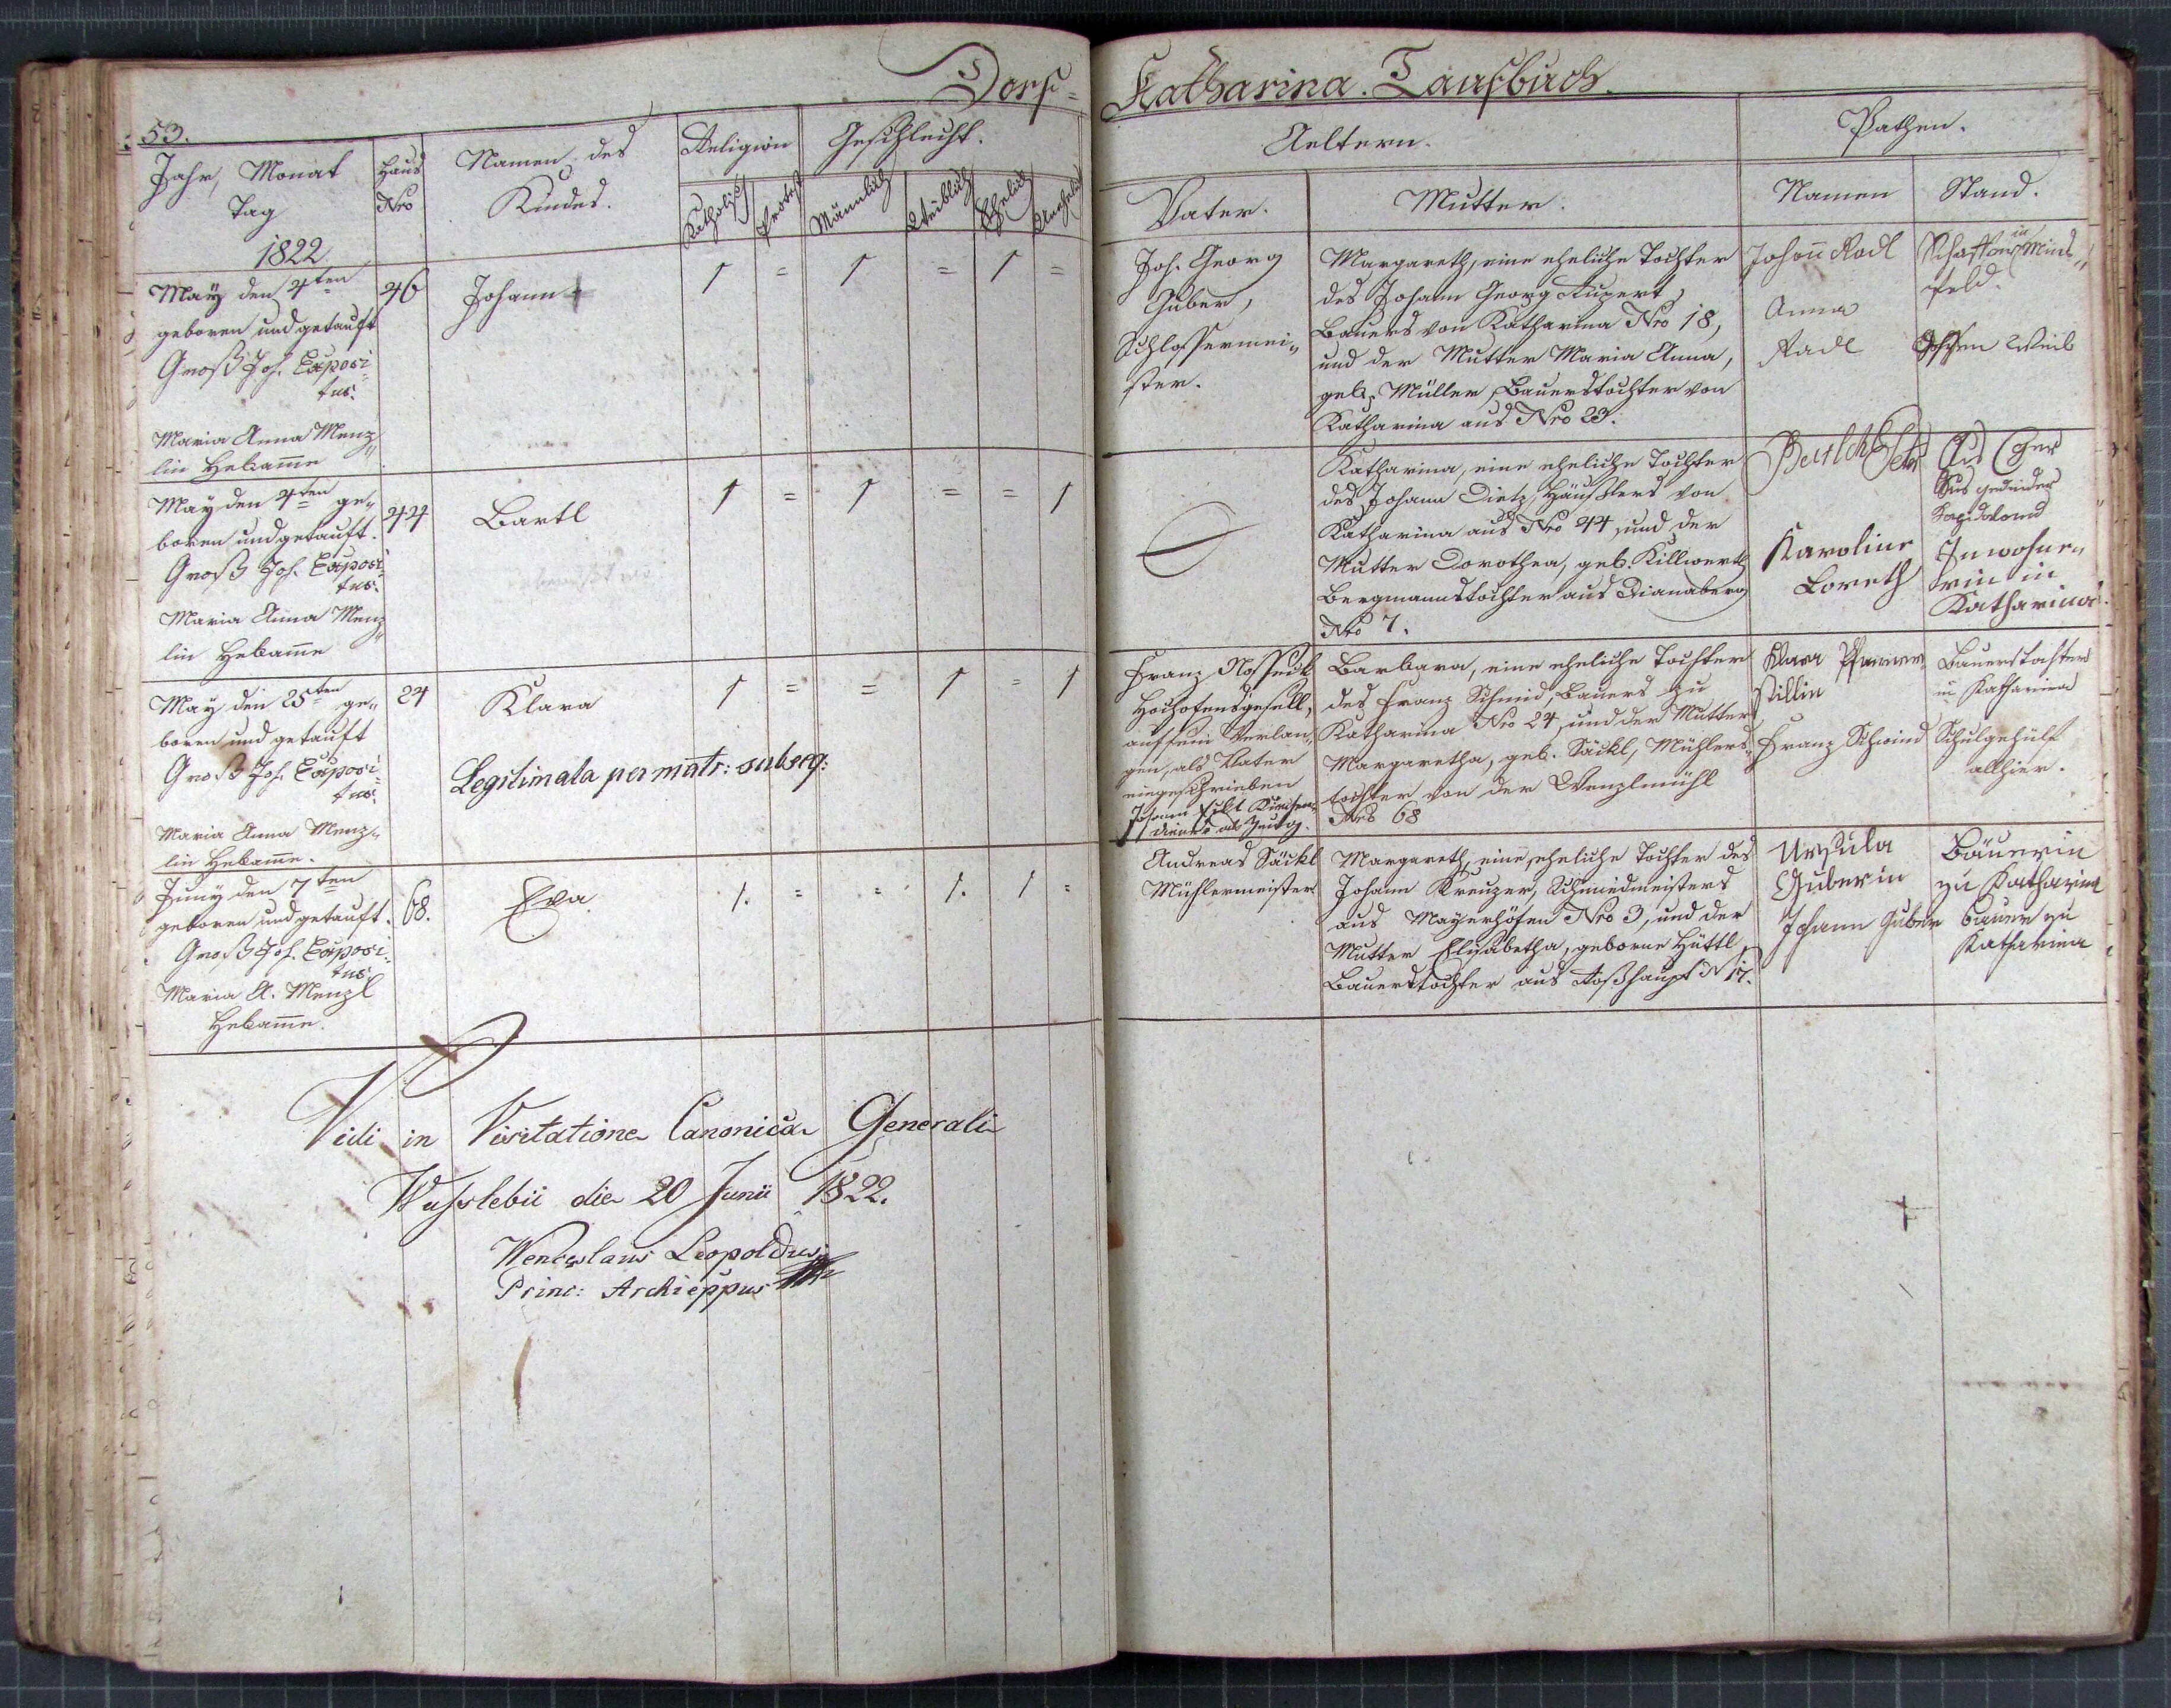 Dorf=
Katharina. Taufbuch.
53.
Jahr, Monat
Tag
1822
Haus
Nro
Namen des
Kindes.
Religion
Katholisch
Protest
Geschlecht.
Männlich
Weiblich
Ehelich
Unehelich
Aeltern.
Vater.
Mutter.
Pathen.
Namen
Stand.
May den 4ten
geboren und getauft
Groß Joh. Exposi=
tus.
Maria Anna Menz„
lin Hebame
46
Johann +
1 = 1 = 1 =
Joh. Georg
Guber,
Schlossermei„
ster.
Margareth, eine eheliche Tochter
des Johann Georg Kupert,
Bauers von Katharina Nro 18,
und der Mutter Maria Anna,
geb. Müller, Bauerstochter von
Katharina aus Nro 23.
Johan Radl
Anna
Radl
in
feld.
dessen Weib
May den 4ten ge„
boren und getauft.
Groß Joh. Exposi=
tus.
Maria Anna Menz„
lin Hebame
44
Bartl
1 = 1 = = 1
Katharina, eine eheliche Tochter
des Johann Dietz, Häuslers von
Katharina aus Nro 44, und der
Mutter Dorothea, geb. Killwerth
Bergmannstochter aus Dianaberg
Nro 7.
Karoline
Loreth
Inwohne„
rin in
Katharina.
May den 25ten ge„
boren und getauft
Groß Joh. Exposi=
tus.
Maria Anna Menz„
lin Hebame.
24
Klara
Legitimata per matr: subseq:
1 = = 1 = 1
Franz
Hochofensgesell,
auf sein Verlan„
gen, als Vater
eingeschrieben
Johann
diener als Zeug.
Barbara, eine eheliche Tochter
des Franz Schmid, Bauers zu
Katharina Nro 24, und der Mutter
Margaretha, geb. Säckl, Mühlers=
tochter von der Wenzlmühl
Nro 68
Klara
Franz Schmid
Bauerstochter
in Katharina
Schulgehülf
allhier.
Juny den 7ten
geboren und getauft.
Groß Joh. Exposi=
tus.
Maria A. Menzl
Hebame.
68.
Eva
1. = = 1. 1 =
Andreas Säckl
Mühlermeister
Margareth, eine eheliche Tochter des
Johann Kreuzer, Schmiedmeisters
aus Mayerhöfen Nro 3, und der
Mutter Elisabetha, geborne Hüttl,
Bauerstochter aus Roßhaupt N 17.
Ursula
Guberin
Johann Guber
Bäuerin
zu Katharina
Bauer zu
Katharina
Vidi in Visitatione Canonica Generali
die 20 Junii 1822.
Wenceslaus Leopoldus
Princ: Archieppus